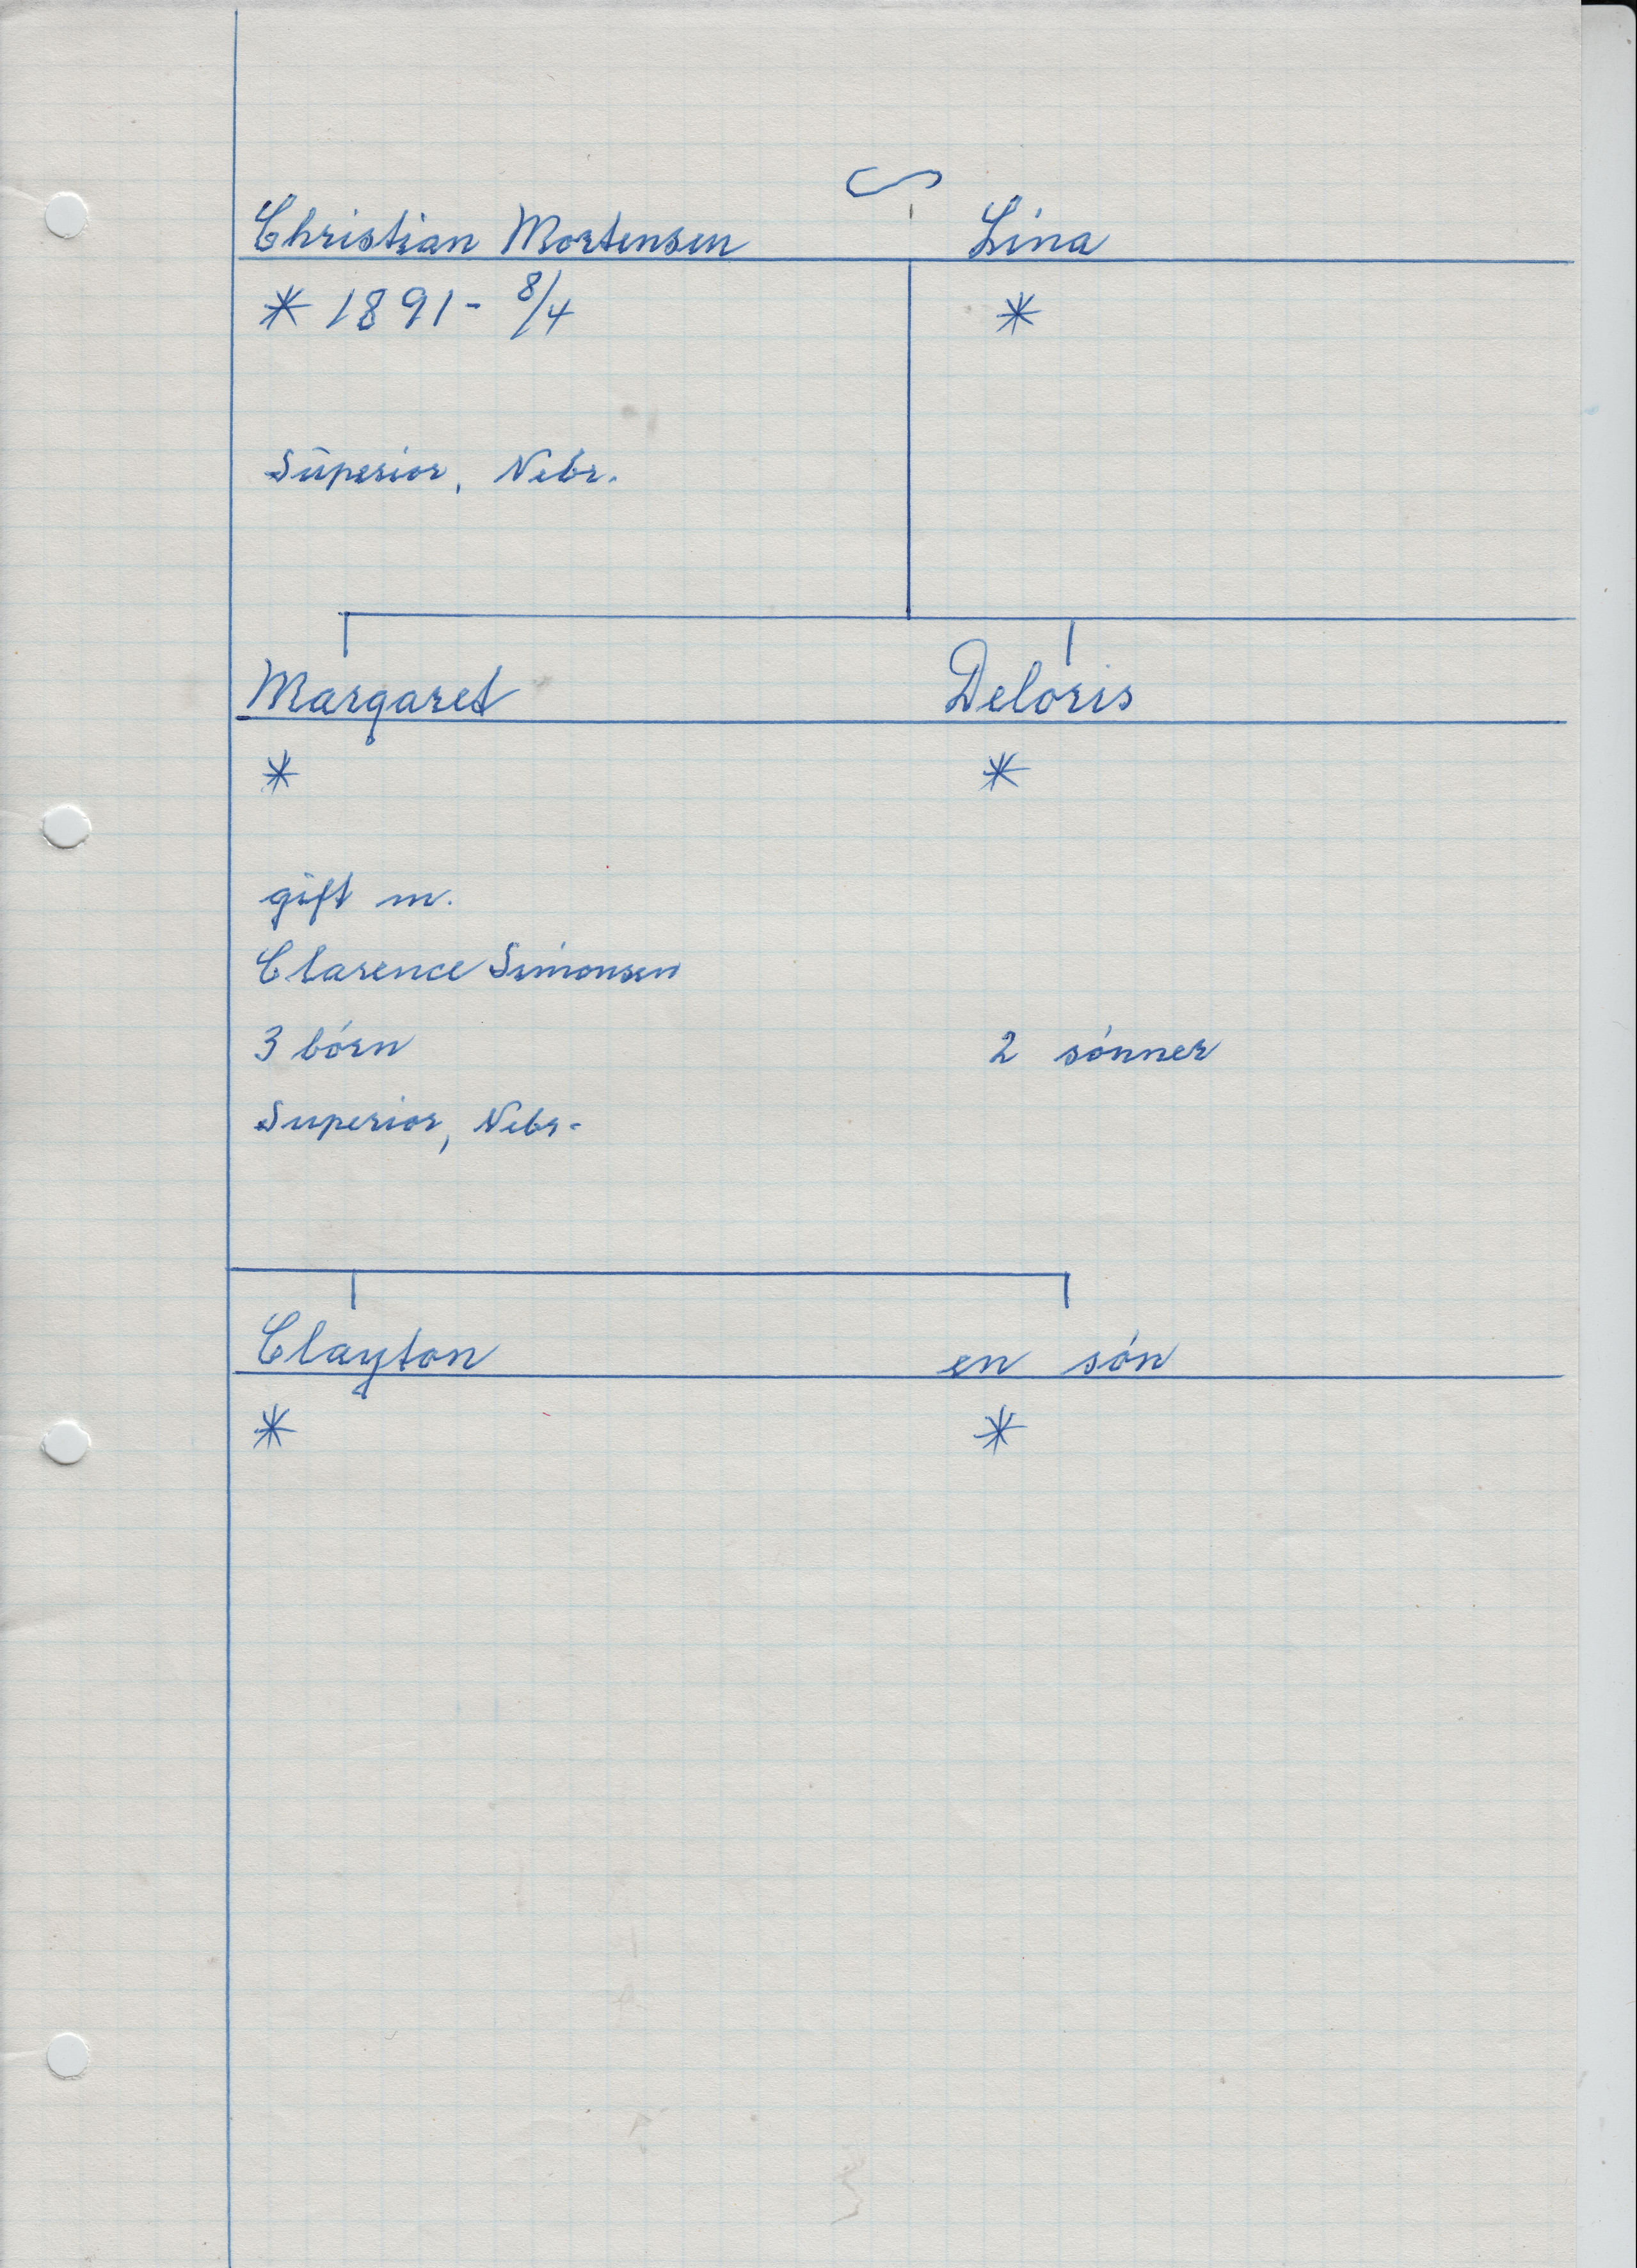 Christian Mortensen Lina
* 1891 - 8/4 *
Superior, Nebr.
Margaret Deloris
* *
gift m.
Clarence Simonsen
3 börn 2 sónner
Superior, Nebr.
Clayton en són
* *